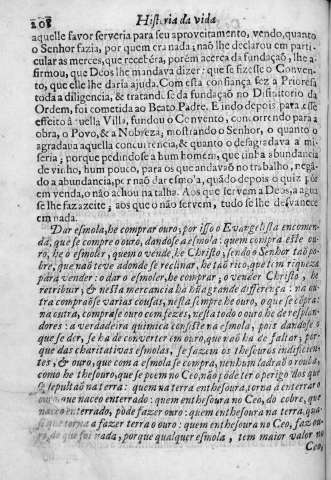 208 Historia da vida
aquelle favor serveria para seu aproveitamento, vendo, quanto
o Senhor fazia, por quem era nada; naõ lhe declarou em parti-
cular as merces, que recebéra, porèm acerca da fundaçaõ, lhe a-
firmou, que Deos lhe mandava dizer: que se fizesse o Conven-
to, que elle lhe daria ajuda. Com esta confiança fez a Prioresa
toda a diligencia, & tratandose da fundaçaõ no Difinitorio da
Ordem, foi cometida ao Beato Padre. E indo depois para esse
effeito àquella Villa, fundou o Convento, concorrendo para a
obra, o Povo, & a Nobreza, mostrando o Senhor, o quanto o
agradava aquella concurrencia, & quanto o desagradava a mi-
seria; porque pedindose a hum homem, que tinha abundancia
de vinho, hum pouco, para os que andavaõ no trabalho, negã-
do a abundancia, por naõ dar esmola, quãdo depois o quiz pór
em venda, o naõ achou na talha. Aos que servem a Deos, a agua
se lhe faz azeite; aos que o naõ servem, tudo se lhe desvanece
em nada.
Dar esmola, he comprar ouro; por isso o Evangelista encomen-
da, que se compre o ouro, dandose a esmola: quem compra este ou-
ro, he o esmoler, quem o vende, he Christo; sendo o Senhor taõ po-
bre, que naõ teve adonde se reclinar, he taõ rico, que tem riqueza
para vender: o dar o esmoler, he comprar; o vender Christo, he
retribuir; & nesta mercancia ha hũa grande differença: na ou-
tra compraõse varias cousas, nesta sempre he ouro, o que se cõpra:
na outra, comprase ouro com fezes, nesta todo o ouro he de resplan-
dores: a verdadeira quimica consiste na esmola, pois dandose o
que se der, se ha de converter em ouro, que naõ ha de faltar; por-
que das charitativas esmolas, se fazem os thesouros indificien-
tes, & ouro, que com a esmola se compra, nenhum ladraõ o rouba,
como he thesouro, que se poem no Ceo, naõ póde ter o perigo dos que
sepultaõ na terra: quem na terra enthesoura, torna a enterrar o
ouro, que naceo enterrado: quem enthesoura no Ceo, do cobre, que
naceo enterrado, póde fazer ouro: quem enthesoura na terra, qua-
si que torna a fazer terra o ouro: quem enthesoura no Ceo, faz ou-
ro, do que foi nada, porque qualquer esmola, tem maior valor no
Ceo,